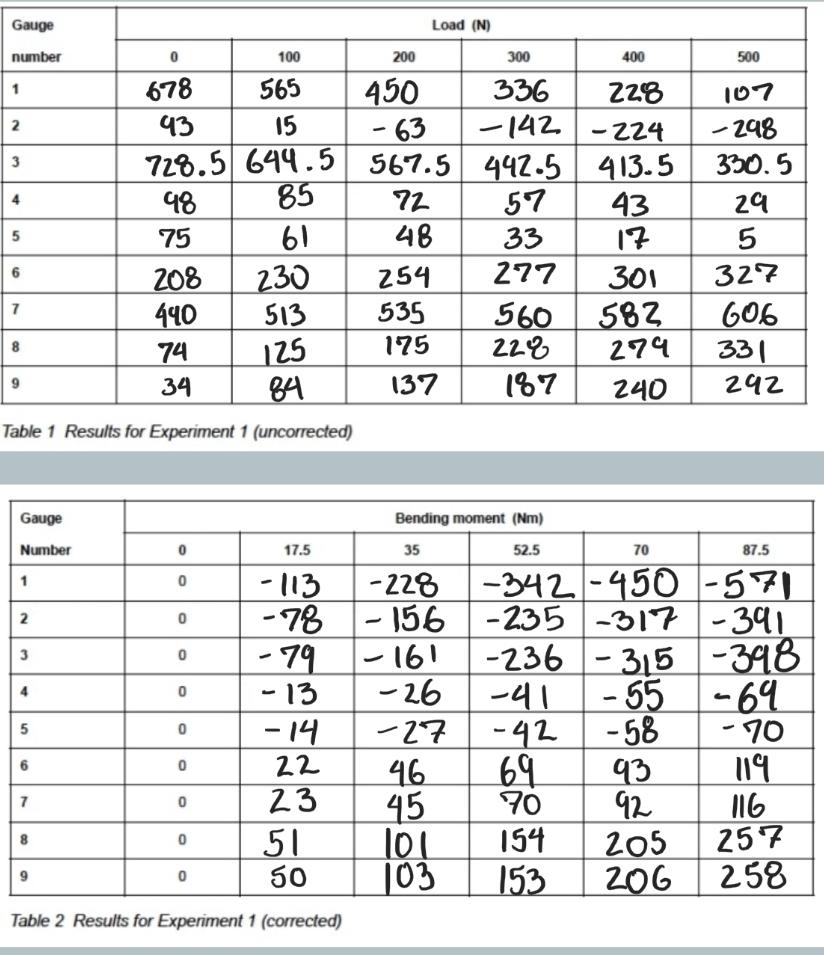 Gauge Load (N)
number 0 100 200 300 400 500
1 678 565 450 336 228 107
2 93 15 -63 -142 -224 -298
3 728.5 649.5 567.5 492.5 413.5 330.5
4 98 85 72 57 43 29
5 75 61 48 33 17 5
6 208 230 254 277 301 327
7 490 513 535 560 582 606
8 74 125 175 228 279 331
9 34 84 137 187 240 292
Table 1 Results for Experiment 1 (uncorrected)
Gauge Bending moment (Nm)
Number 0 17.5 35 52.5 70 87.5
1 0 -113 -228 -342 -450 -571
2 0 -78 -156 -235 -317 -391
3 0 -79 -161 -236 -315 -398
4 0 -13 -26 -41 -55 -69
5 0 -14 -27 -42 -58 -70
6 0 22 46 69 93 119
7 0 23 45 70 92 116
8 0 51 101 154 205 257
9 0 50 103 153 206 258
Table 2 Results for Experiment 1 (corrected)